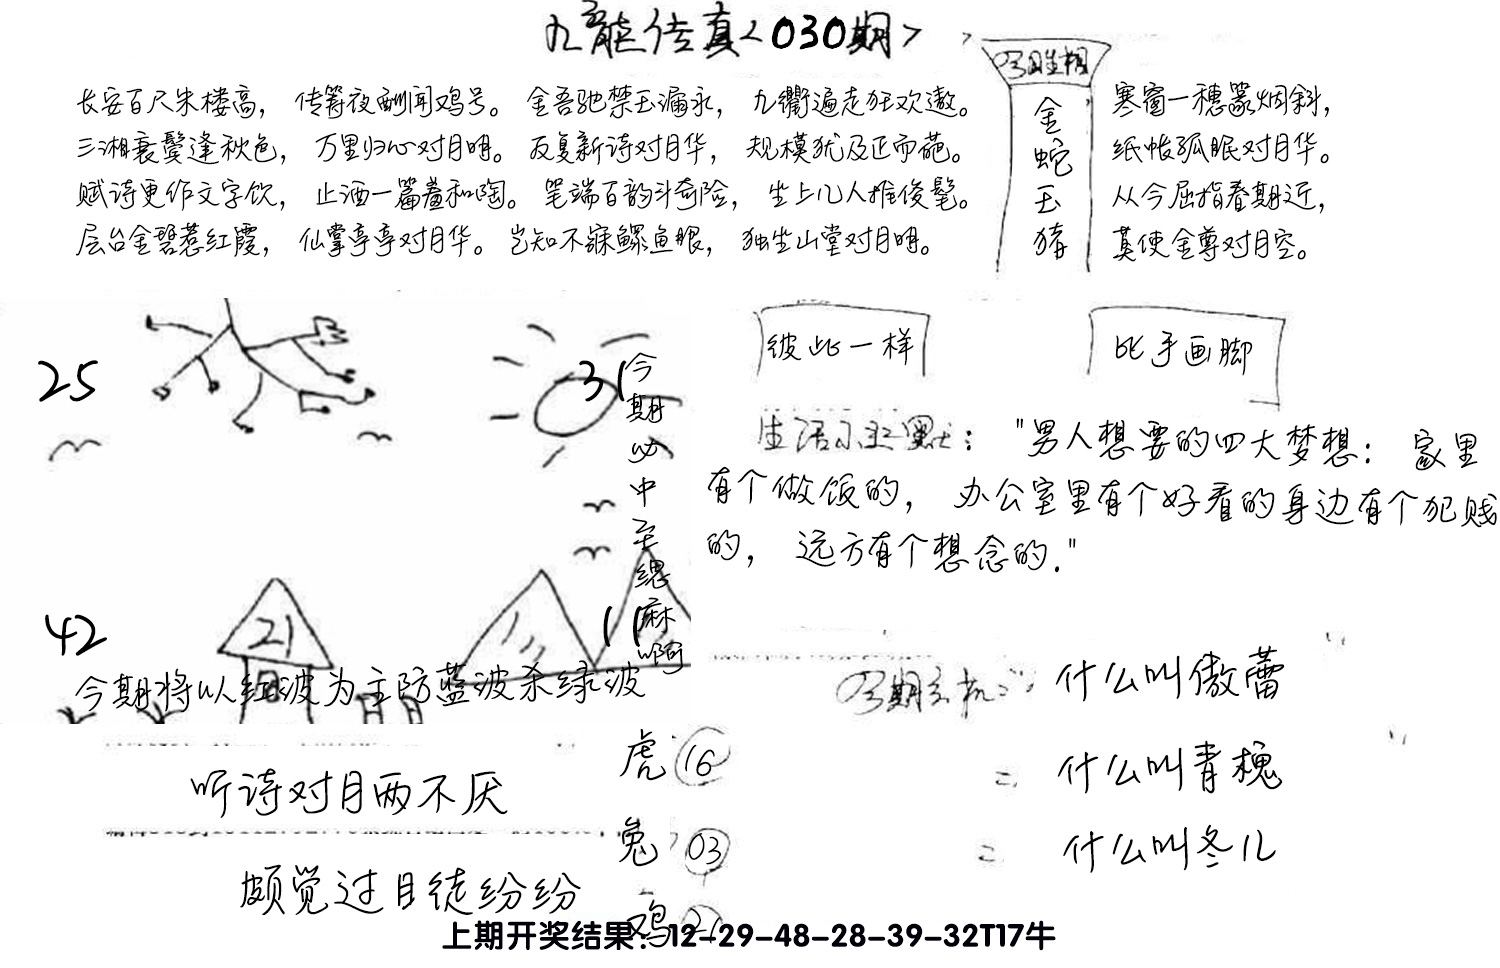 九龙传真<030期>
长安百尺朱楼高，传筹夜酬闻鸡号。金吾驰禁玉漏永，九衢遍走狂欢遨。
三湘衰鬓逢秋色，万里归心对月明。反复新诗对月华，规模犹及正而葩。
赋诗更作文字饮，止酒一篇羞和陶。笔端百韵斗奇险，坐上几人推俊髦。
层台金碧惹红霞，仙掌亭亭对月华。岂知不寐鳏鱼眼，独坐山堂对月明。
今期生相
金
蛇
玉
猪
寒窗一穗篆烟斜，
纸帐孤眠对月华。
从今屈指春期近，
莫使金尊对月空。
25
31
今期必中无缌麻啊
彼此一样
比手画脚
生活幽默："男人想要的四大梦想：家里
有个做饭的，办公室里有个好看的身边有个犯贱
的，远方有个想念的."
42
21
11
今期将以红波为主防蓝波杀绿波
今期玄机
什么叫傲蕾
什么叫青槐
什么叫冬儿
听诗对月两不厌
颇觉过目徒纷纷
虎 16
兔 03
鸡 21
上期开奖结果：12-29-48-28-39-32T17牛